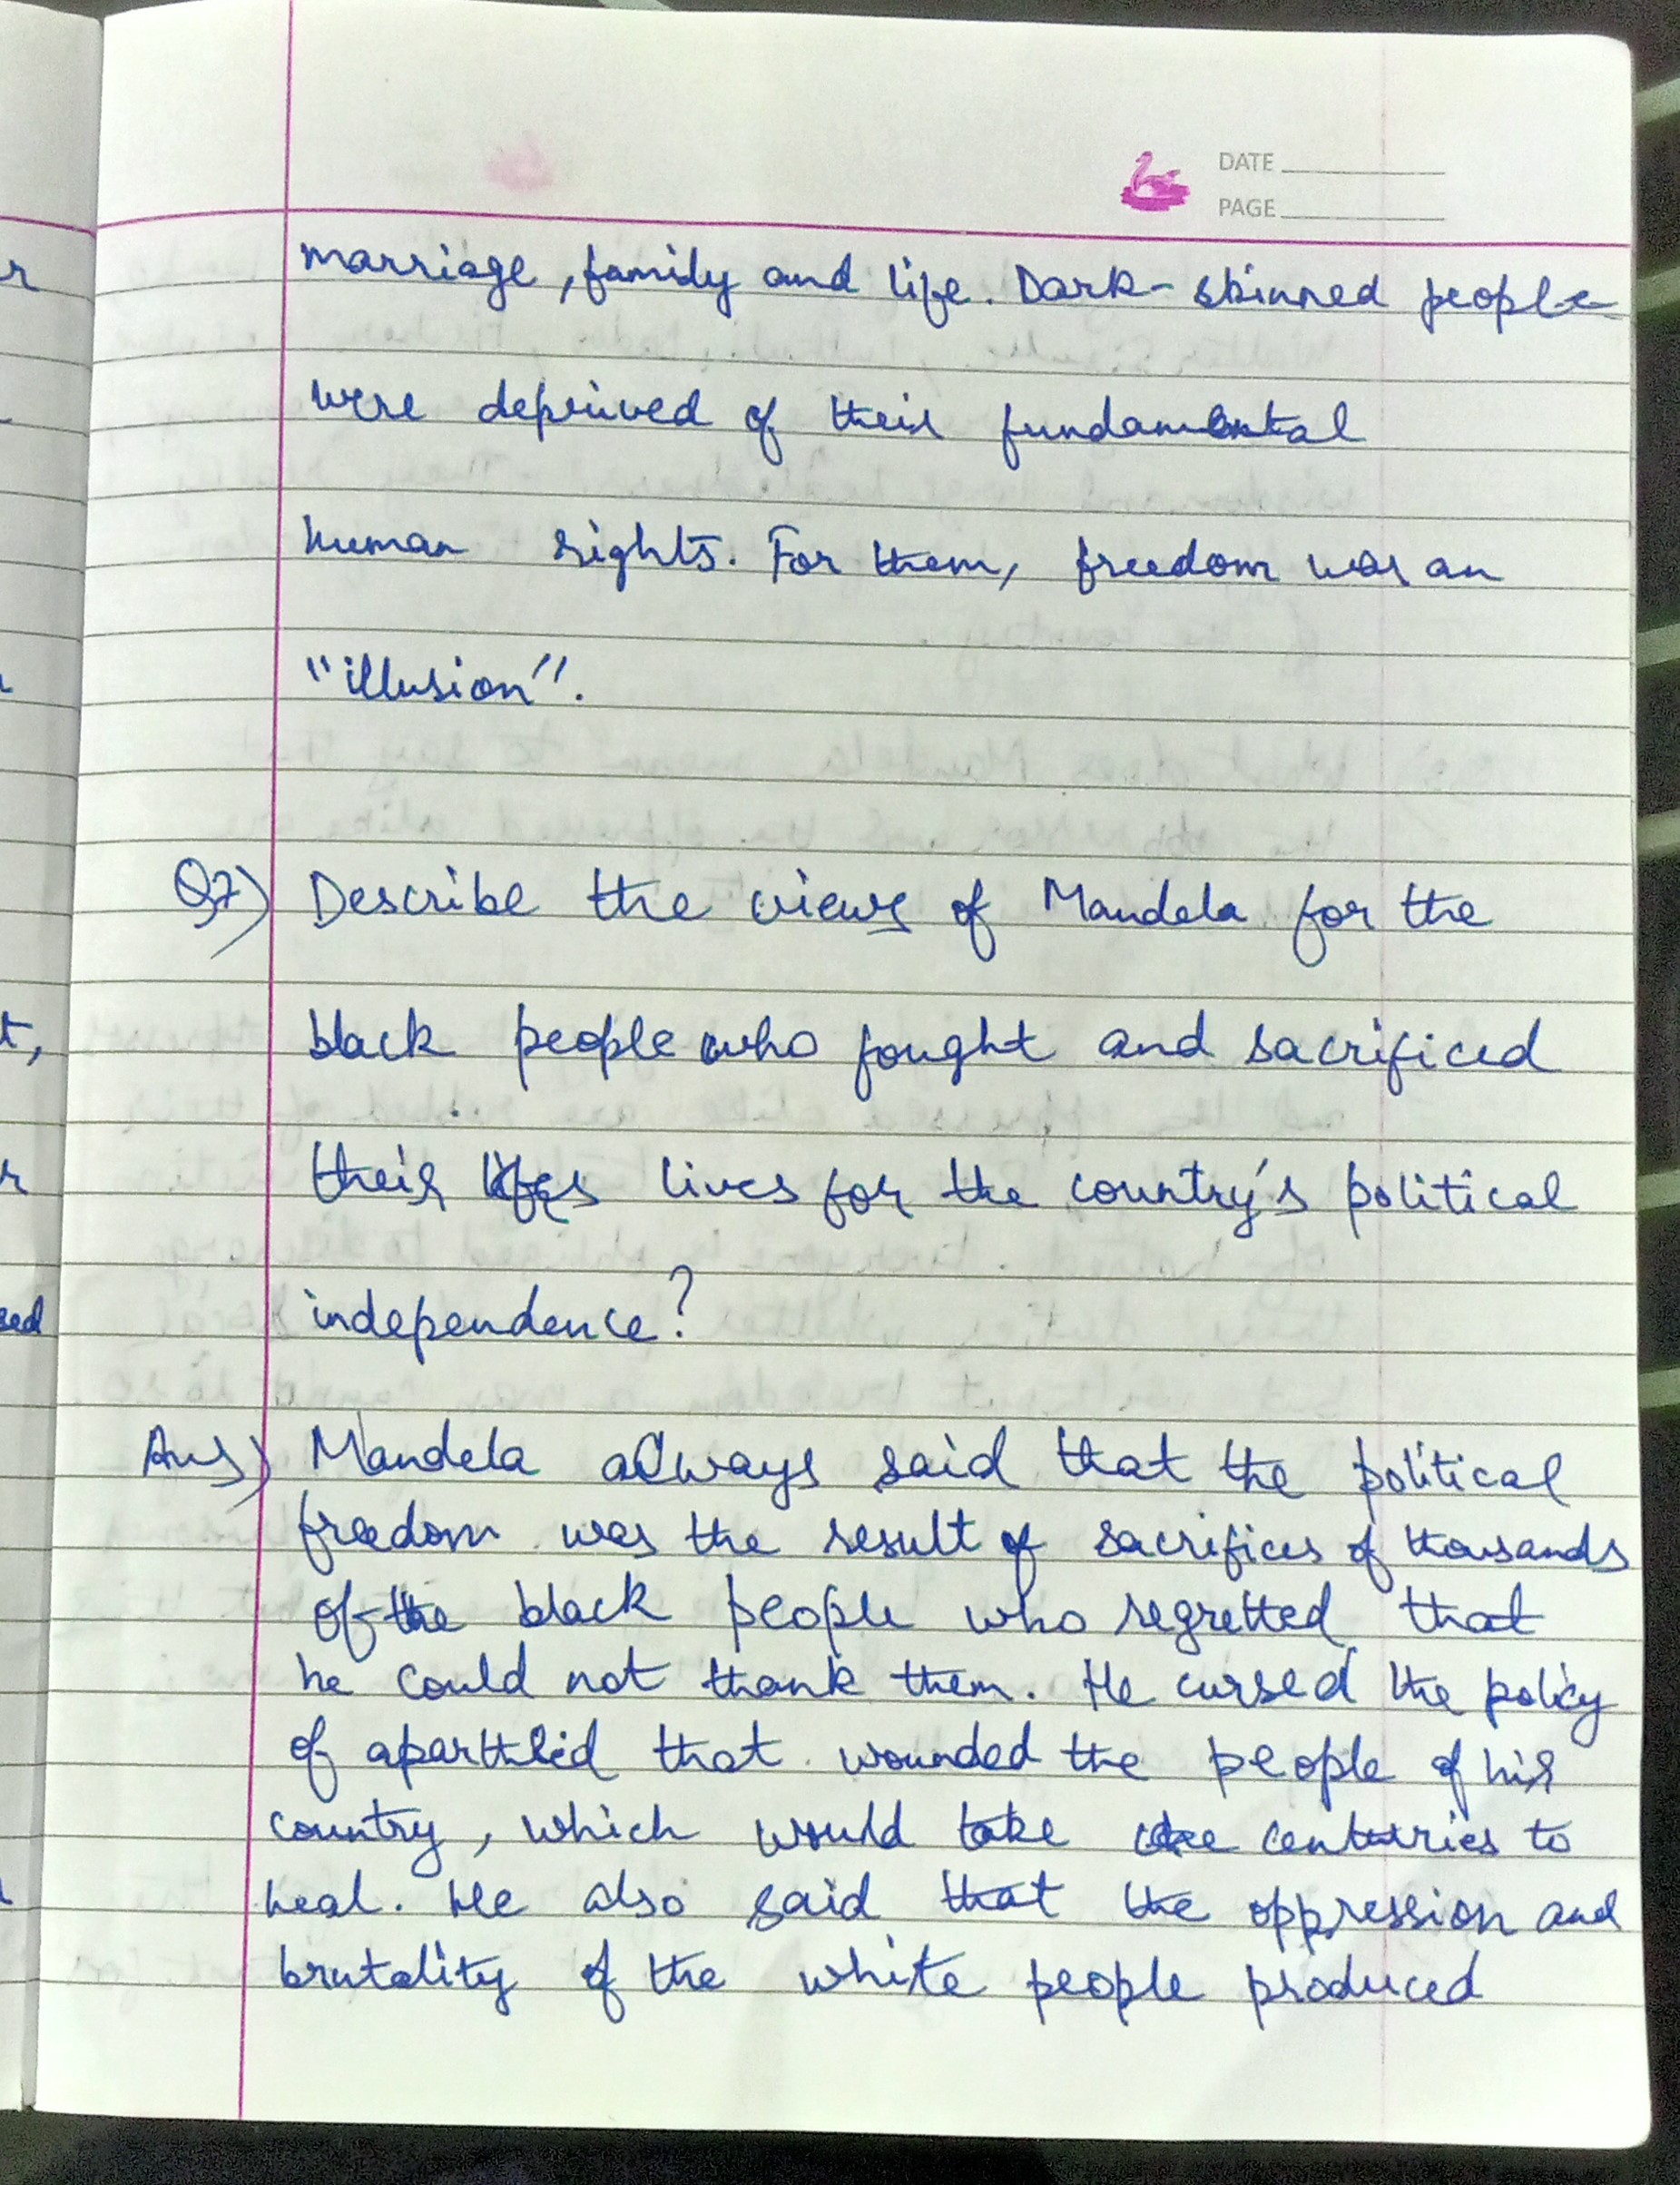 DATE
PAGE
marriage, family and life. Dark-skinned people
were deprived of their fundamental
human rights. For them, freedom was an
"illusion".
Q7) Describe the views of Mandela for the
black people who fought and sacrificed
their lives for the country's political
independence?
Ans) Mandela always said that the political
freedom was the result of sacrifices of thousands
of the black people who regretted that
he could not thank them. He cursed the policy
of that wounded the people of his
country, which would take centuries to
heal. He also said that the oppression and
brutality of the white people produced
t,
sed